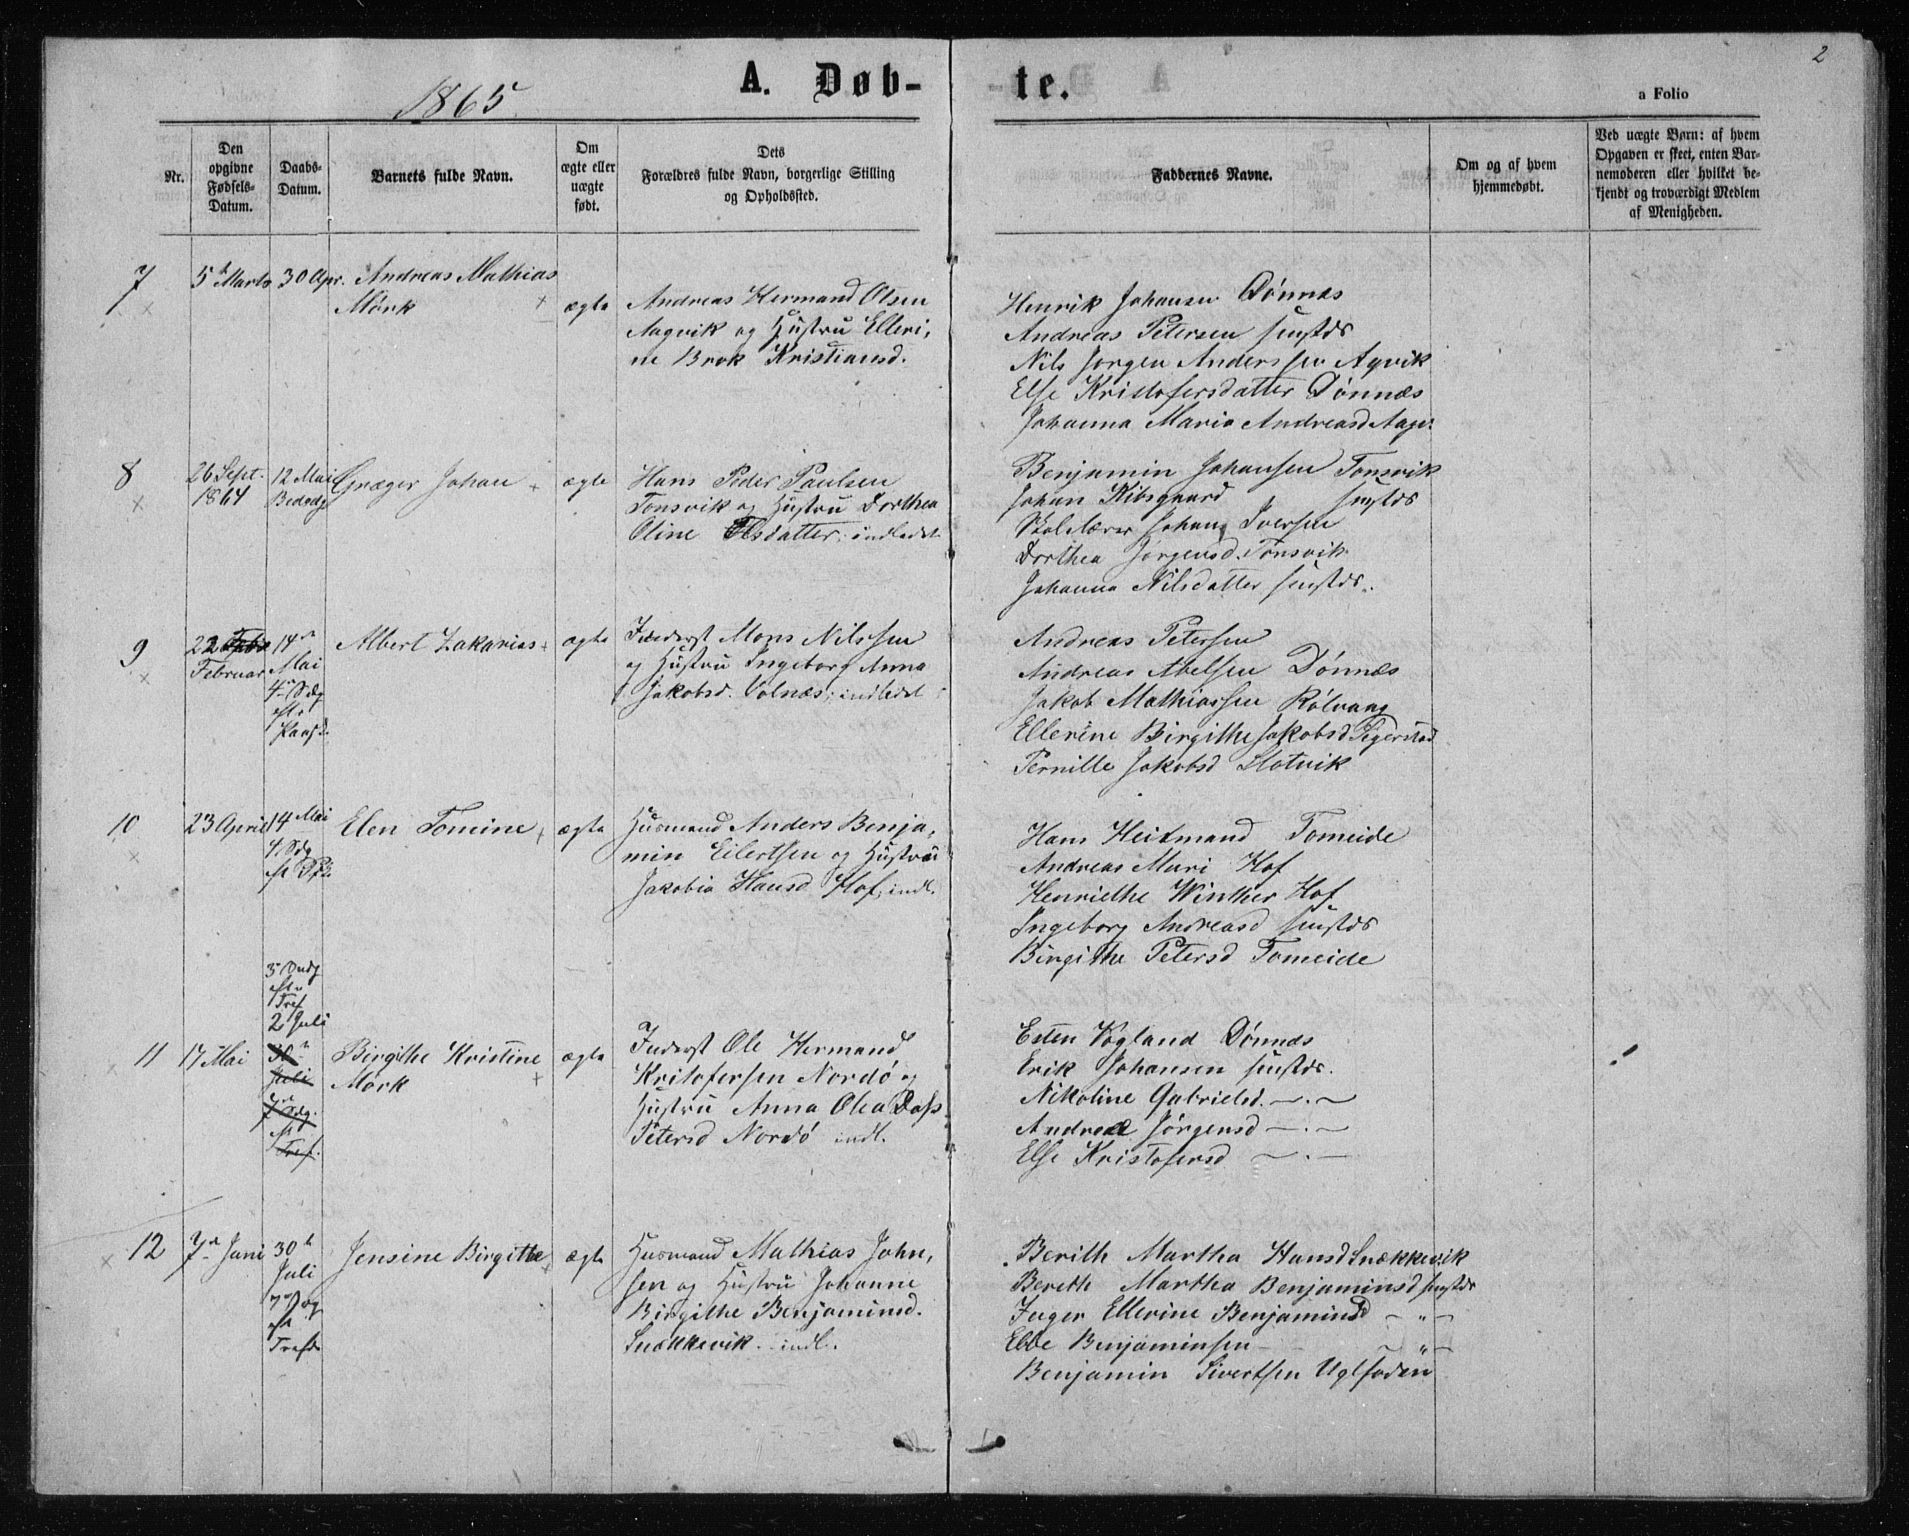 2
1865
A. Døb-
te.
a Folio
Nr.
Den opgivne Fødsels-Datum.
Daabs-Datum.
Barnets fulde Navn.
Om ægte eller uægte født.
Dets Forældres fulde Navn, borgerlige Stilling og Opholdssted.
Faddernes Navne.
Om og af hvem hjemmedøbt.
Ved uægte Børn: af hvem Opgaven er skeet, enten Barnemoderen eller hvilket bekjendt og troværdigt Medlem af Menigheden.
7
5t Marts
30 Apr.
Andreas Mathias
Mørk
ægte
Andreas Hermand Olsen
Aagvik og Hustru Elleri,
ne Brok Kristiansd.
Henrik Johansen Dønnæs
Andreas Petersen sammestds
Nils Jørgen Anderssen Agvik
Else Kristofersdatter Dønnæs
Johanna Maria Andreasd Aagv.
8
26 Sept.
1864
12 Mai
Bededg
Græger Johan
ægte
Hans Peder Paulsen
Tonsvik og Hustru Dorthea
Oline Elsdatter. indledet
Benjamin Johansen Tonsvik
Johan Kibsgaard smstds
Skolelærer Johan Iversen
Dorthea Jørgensd. Tonsvik
Johanna Nilsdatter smstds.
9
22 Febr
Februar
14de
Mai
4 Sdg
eft.
Paask.
Albert Zakarias
ægte
Inderst Mons Nilssen
og Hustru Ingeborg Anna
Jakobsd. Volnæs; indledet
Andreas Petersen
Andreas Abelsen Dønnæs
Jakob Mathiassen Rølvaag
Ellerine Birgithe Jakobsd Tigerstad
Pernille Jakobsd Slotvik
10
23 April
14 Mai
4. Sdg
eft Psk.
Elen Tomine
ægte
Husmand Anders Benja,
min Eilertsen og Hustru
Jakobia Hansd Hof, indl.
Hans Heitmand Tomeide
Andreas Mari Hof
Henriethe Winther Hof
Ingeborg Andreasd smstds
Birgithe Petersd Tomeide
3 Sndg
eft
Tref
2 Juli
11
17 Mai
30t
Juli
7 Sdg.
eft
Tref.
Birgithe Kristine
Mørk
ægte
Inderst Ole Hermand
Kristofersen Nordø og
Hustru Anna Olea Dass
Petersd Nordø indl.
Esten Vogland Dønnæs
Erik Johansen smstds.
Nikoline Gabrielsd. — . —
Andrea Jørgensd — . —
Else Kristofersd — . —
12
7de Juni
30t
Juli
7 Sdg
eft
Trefd
Jensine Birgithe
ægte
Husmand Mathias John,
sen og Hustru Johanne
Birgithe Benjaminsd.
Snækkevik. indl.
Berith Martha Hansd Snækkevik
Bereth Martha Benjaminsd smstds
Inger Ellerine Benjaminsd — " —
Ebbe Benjaminsen — " —
Benjamin Sivertsen